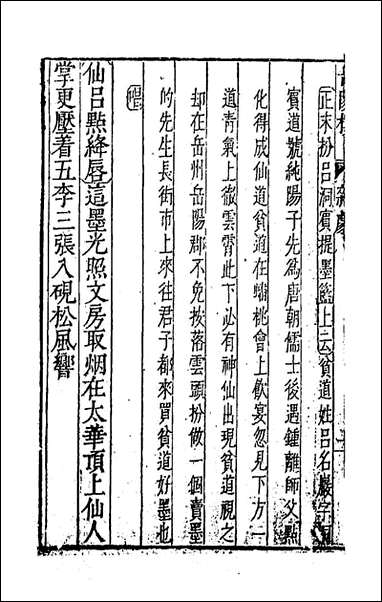 岳陽樓 雜劇
正末扮呂洞賓提墨籃上云貧道姓呂名巖字洞
賓道號純陽子先爲唐朝儒士後遇鍾離師父點
化得成仙道貧道在蟠桃會上飲宴忽見下方一
道青氣上徹雲霄此下必有神仙出現貧道視之
却在岳州岳陽郡不免按落雲頭扮做一個賣墨
的先生長街市上來往君子都來買貧道好墨也
唱
仙呂點絳唇這墨光照文房取烟在太華頂上仙人
掌更壓着五李三張入硯松風響